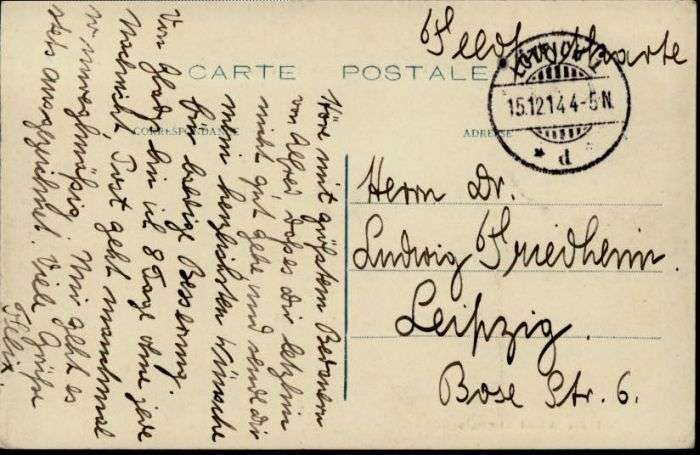 Feldpostkarte
CARTE POSTALE
15.12.14 4-5 N.
* d *
CORRESPONDANCE
ADRESSE
Herrn Dr.
Ludwig Friedheim.
Leipzig.
Bose Str. 6.
Höre mit größtem Bedauern
von Alfred dass es dir letzthin
nicht gut gehe und sende dir
mein herzlichsten Wünsche
für baldige Besserung.
Von bin ich 8 Tage ohne jede
Nachricht. Post geht manchmal
unregelmäßig. Mir geht es
stets ausgezeichnet. Viele Grüße
Felix.